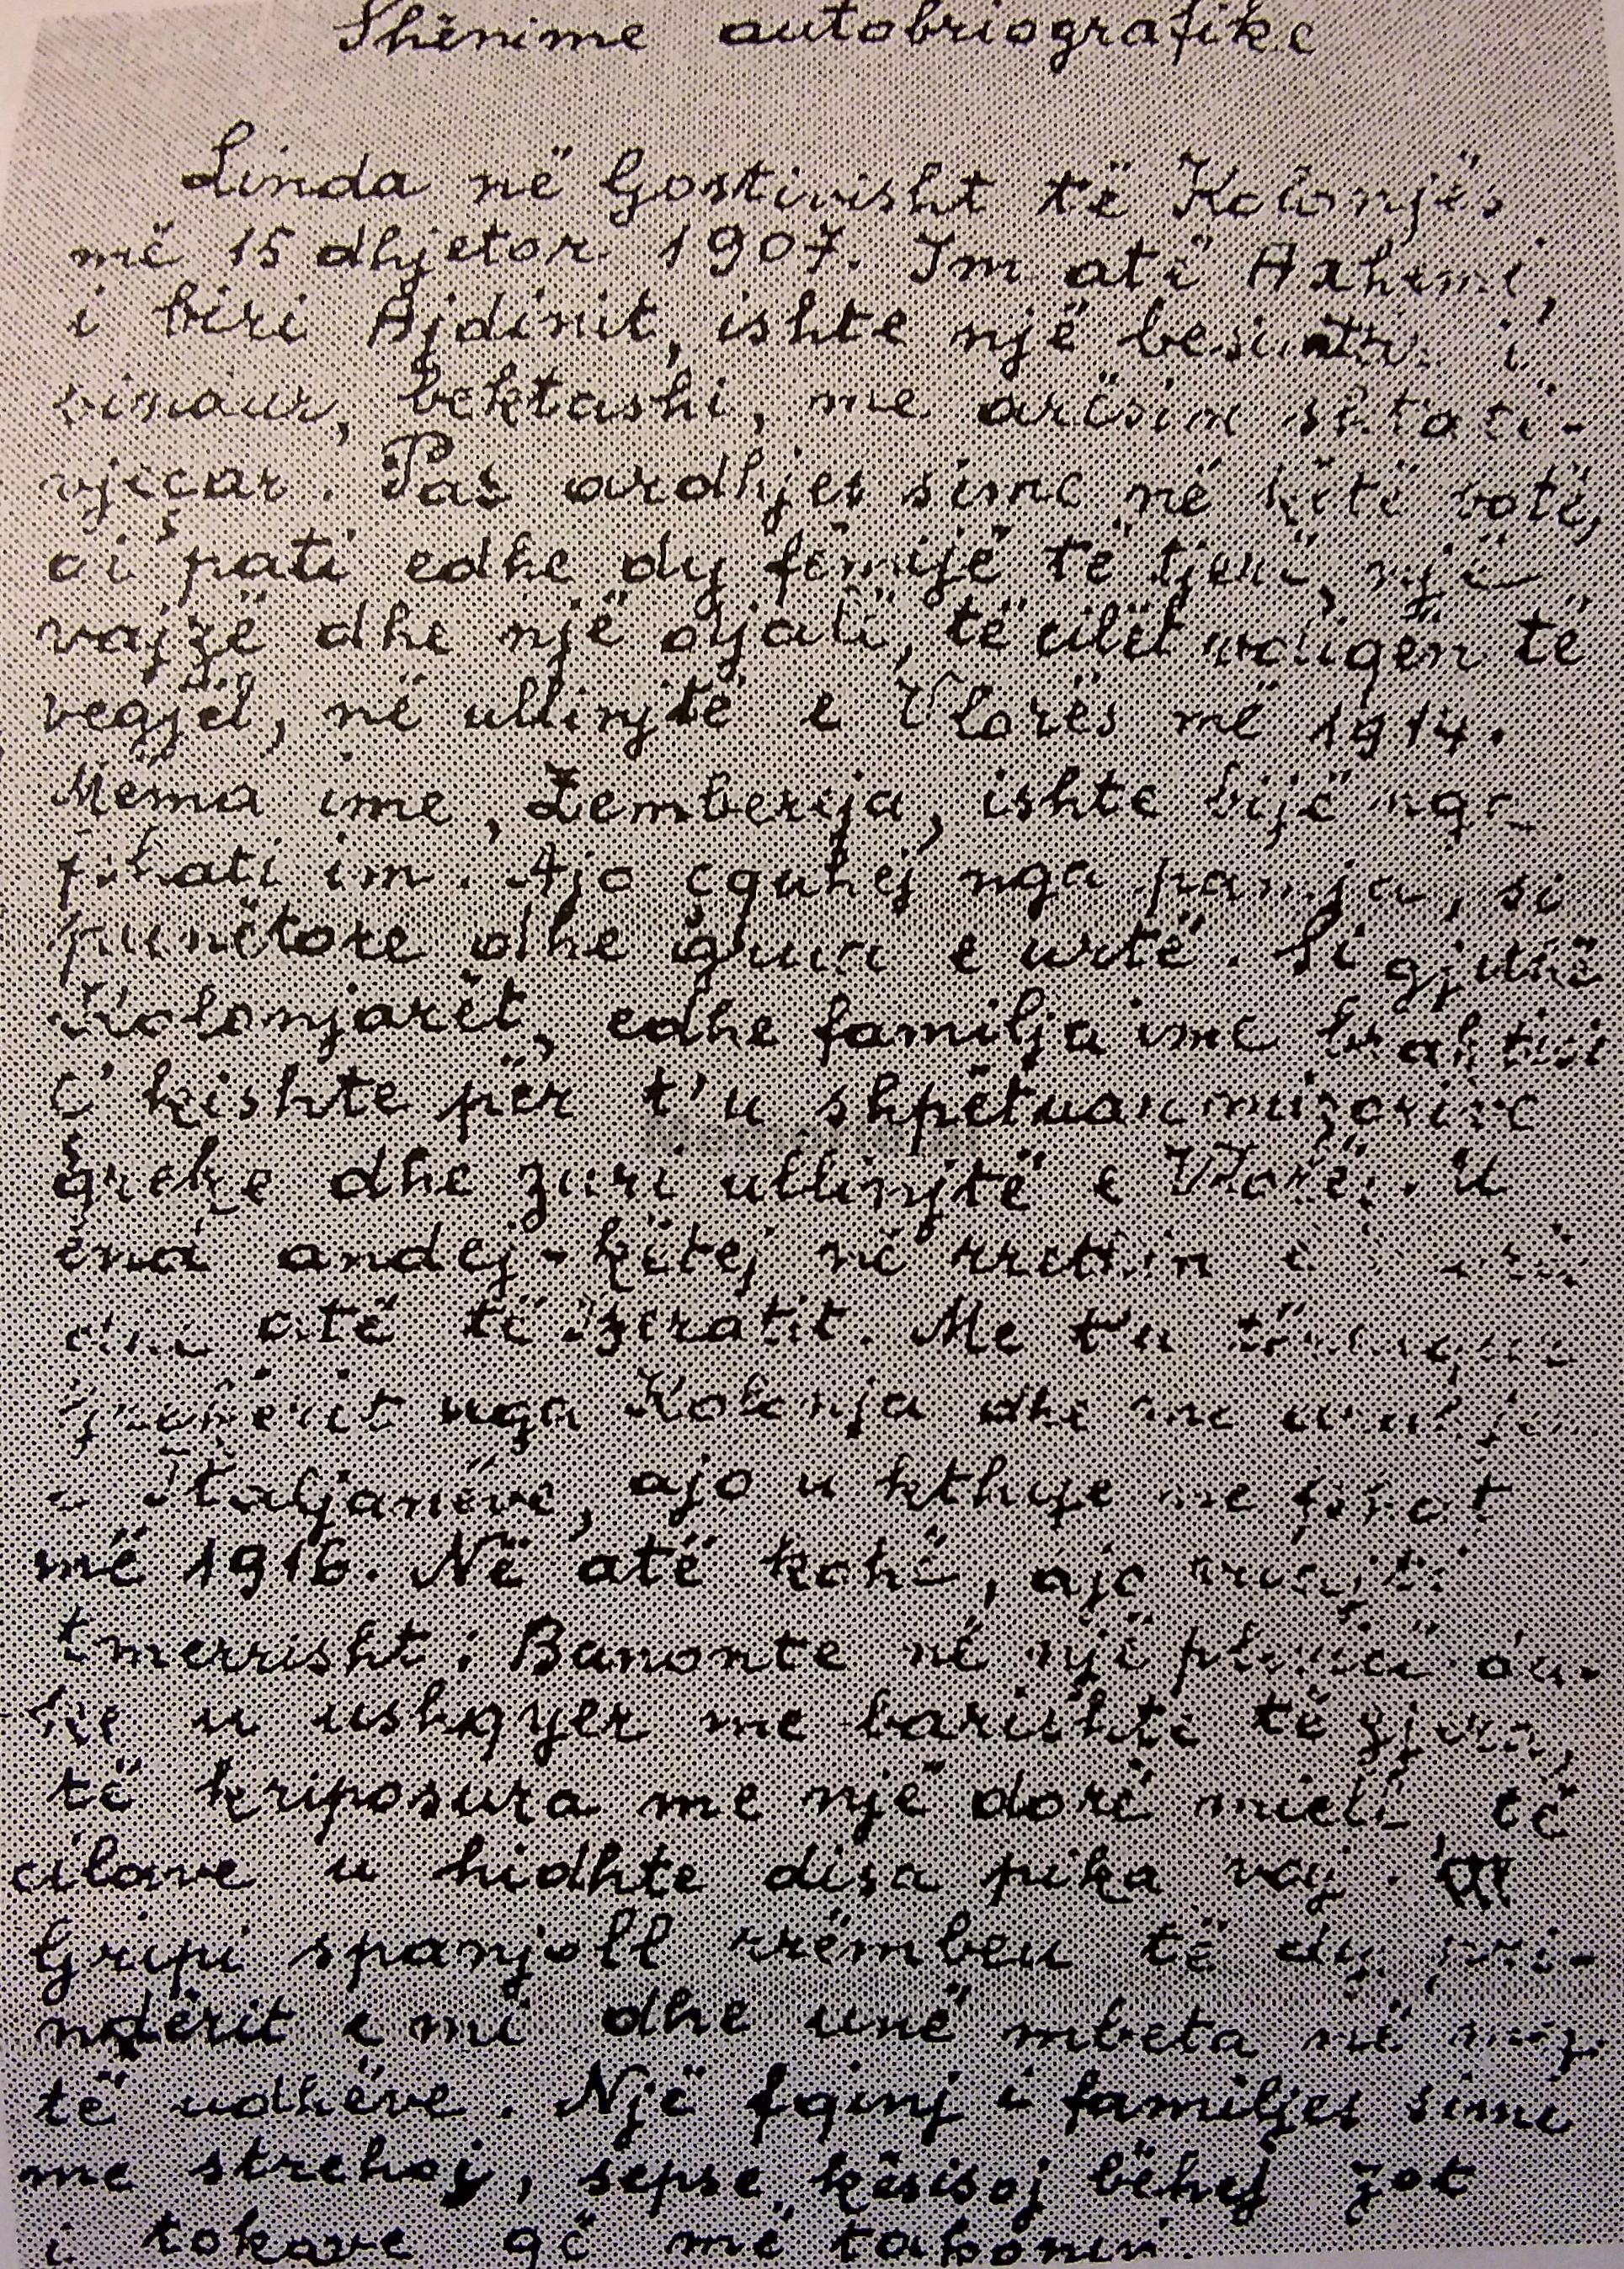 Shënime autobriografike
Linda në Gostivisht të Kolonjës
më 15 dhjetor 1907. Im atë Axhemi,
i biri Ajdinit, ishte një besimtar i
bektashi, me arësim shtatë-
vjeçar. Pas ardhjes sime në këtë botë,
ai pati edhe dy fëmijë të tjerë, një
vajzë dhe një djalë, të cilët vdiqën të
vegjël, në ullinjtë e Vlorës më 1914.
Mëma ime, Zembereja, ishte bijë nga
fshati im. Ajo çquhej nga pamja, si
punëtore dhe grua e urtë. Si gjithë
Kolonjarët, edhe familja ime braktisi
ç'kishte për t'u shpëtuar mizorive
greke dhe zuri ullinjtë e Vlorës. U
end andej-këtej në rrethin e
dhe atë të Beratit. Me t'u
grekërit nga Kolonja dhe me ardhjen
e Italjanëve, ajo u kthye me fshat
më 1916. Në atë kohë, ajo
tmerrisht: Banonte në një plevicë du-
ke u ushqyer me barishte të zjera,
të kriposura me një dorë miell, të
cilave u hidhte disa pika vaj.
Gripi spanjoll rrëmbeu të dy pri-
ndërit e mi dhe unë mbeta në mes
të udhëve. Një fqinj i familjes sime
me strehoj, sepse kësisoj bëhej zot
i tokave që më takonin.